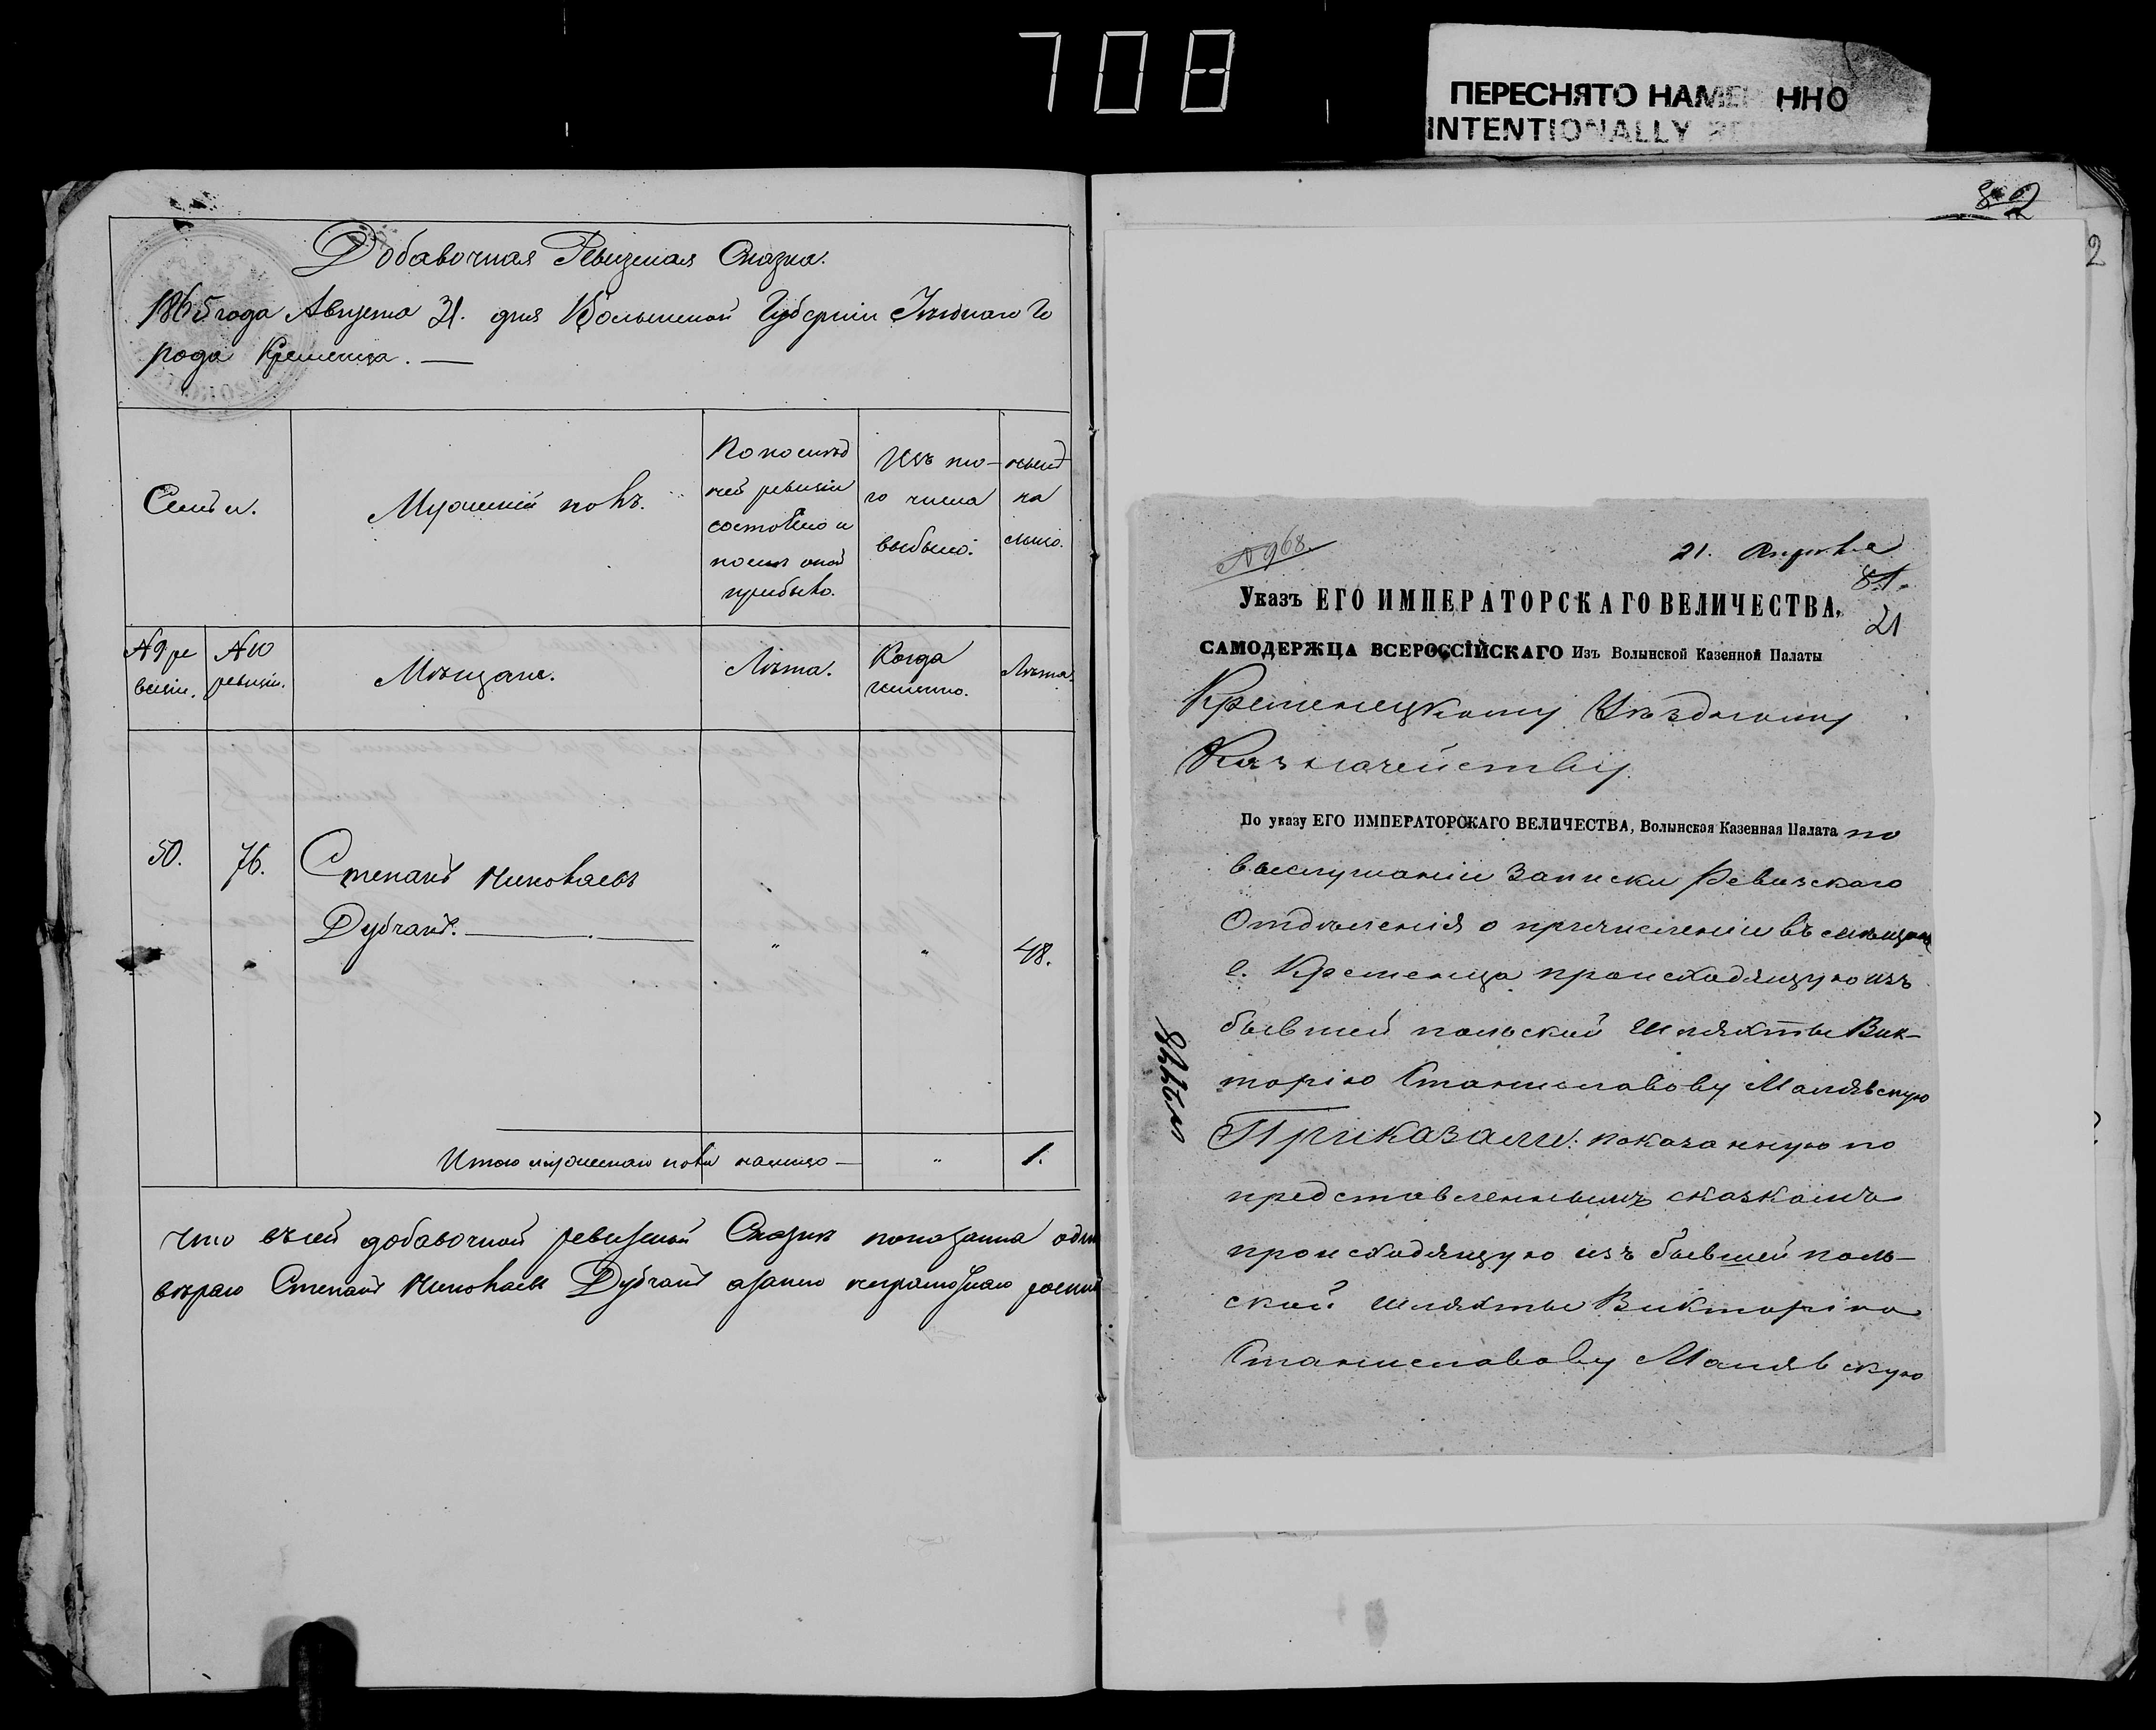 708
ПЕРЕСНЯТО НАМЕ ННО
INTENTIONALLY
Добавочная Ревизская Сказка.
1865 года Августа 31. дня Волынской Губерніи Уѣзднаго Го
рода Кременца. —
Семьи.
Мужескій полъ.
По послѣд
ней ревизіи
состояло и
послѣ оной
прибыло.
Изъ то-
го числа
выбыло.
нынѣ
на
лицо.
№ 9 ре
визіи.
№ 10
ревизіи.
Мѣщане.
Лѣта.
Когда
именно.
Лѣта.
50.
76.
Степанъ
Дубчакъ. —
"
"
48.
Итого мужескаго пола налицо —
"
1.
Что въ сей добавочной ревизской Сказкѣ показанна
Степанъ Дубчакъ
82
2
№ 968.
21. Апрѣля
81.
21
Указъ ЕГО ИМПЕРАТОРСКАГО ВЕЛИЧЕСТВА,
САМОДЕРЖЦА ВСЕРОССІЙСКАГО Изъ Волынской Казенной Палаты
Кременецкому Уѣздному
Казначейству.
По указу ЕГО ИМПЕРАТОРСКАГО ВЕЛИЧЕСТВА, Волынская Казенная Палата по
выслушаніи записки Ревизскаго
Отдѣленія о причисленіи въ мѣщане
г. Кременца происходящую изъ
бывшей польской Шляхты Вик-
торію Станиславову Малявскую
Приказали: показанную по
представленнымъ сказкамъ
происходящую изъ бывшей поль-
ской шляхты Викторію
Станиславову Малявскую